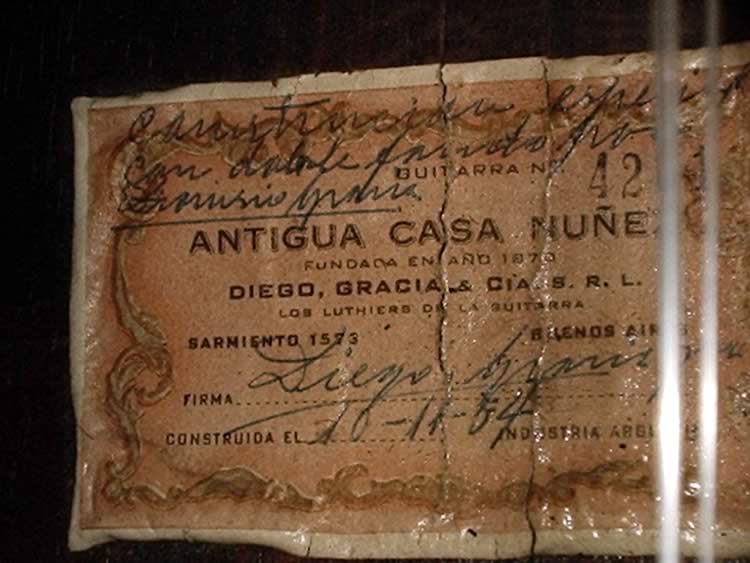 Construcción especial
con doble fondo por
GUITARRA Nº 42
Dionisio Gracia
ANTIGUA CASA NUÑE
FUNDADA EN AÑO 1870
DIEGO, GRACIA & Cia. S. R. L.
LOS LUTHIERS DE LA GUITARRA
SARMIENTO 1573 BUENOS AIRES
FIRMA Diego Gracia
CONSTRUIDA EL 10-11-54 INDUSTRIA ARGE